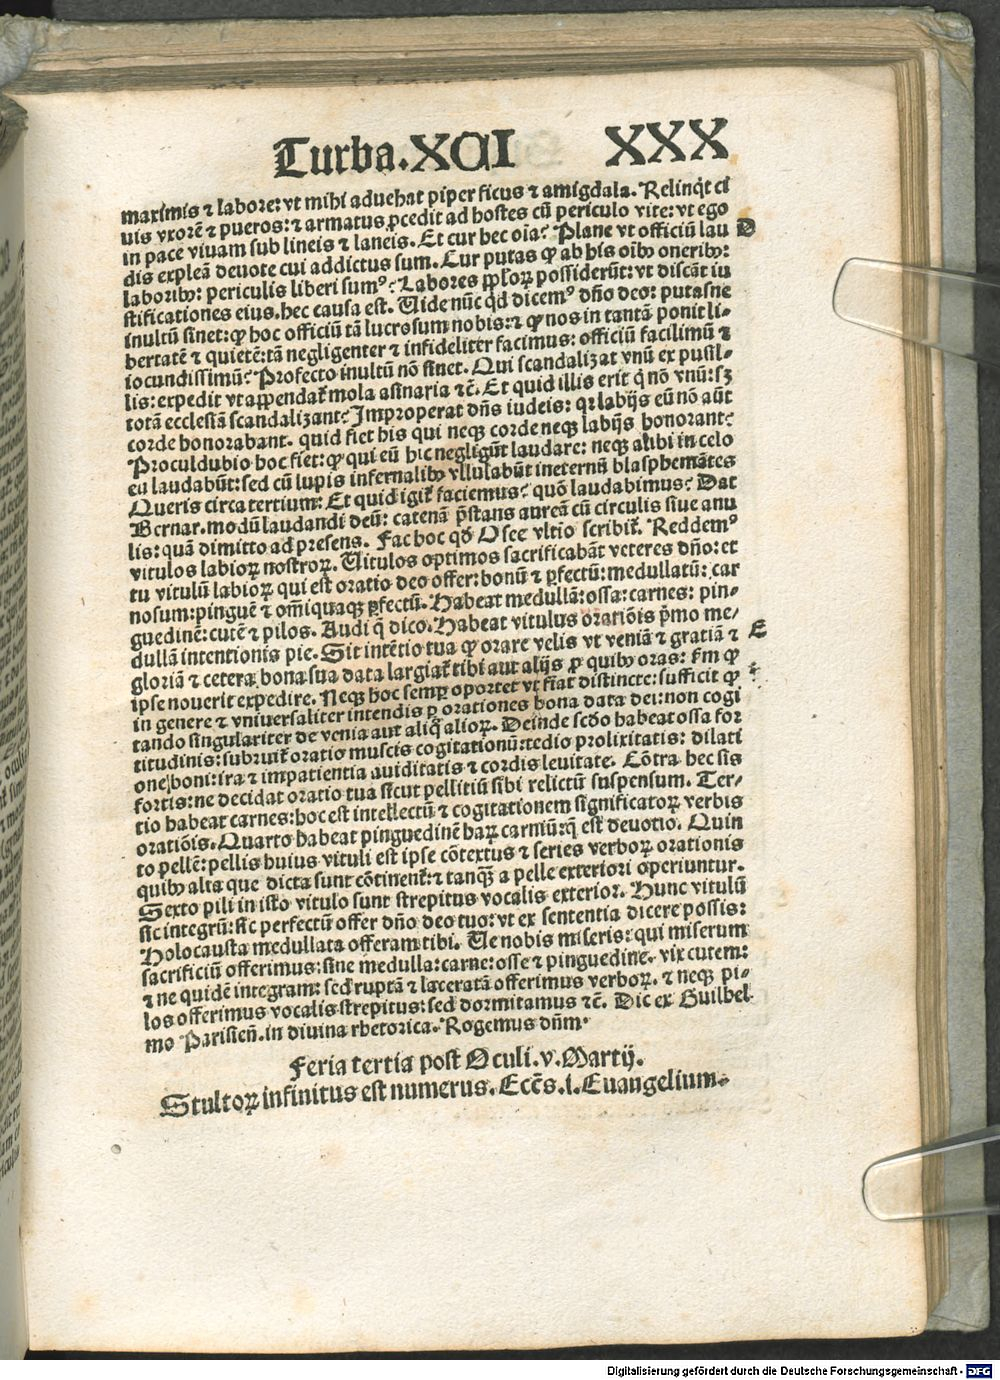 Turba.XCI XXX
maximis ⁊ labore: vt mihi aduehat piper ficus ⁊ amigdala. Relinq̇t ci
uis vxorē ⁊ pueros: ⁊ armatus ꝓcedit ad hostes cū periculo vite: vt ego
in pace viuam sub lineis ⁊ laneis. Et cur hec oīa? Plane vt officiū lau D
dis expleā deuote cui addictus sum. Cur putas ꝙ ab his oībꝰ oneribꝰ:
laboribꝰ: periculis liberi sumꝰ? Labores ppl'oꝝ possiderūt: vt discāt iu
stificationes eius. hec causa est. Uide nūc qd dicemꝰ dño deo: putasne
inultū sinet: ꝙ hoc officiū tā lucrosum nobis: ⁊ ꝙ nos in tantā ponit li-
bertatē ⁊ quietē: tā negligenter ⁊ infideliter facimus: officiū facilimū ⁊
iocundissimū? Profecto inultū nō sinet. Qui scandalizat vnū ex pusil-
lis: expedit vt appendat̃ mola asinaria ⁊c̄. Et quid illis erit q̇ nō vnū: sꝫ
totā ecclesiā scandalizant? Improperat dñs iudeis: qꝛ labijs eū nō aūt
corde honorabant. quid fiet his qui neqꝫ corde neqꝫ labijs honorant?
Proculdubio hoc fiet: ꝙ qui eū hic negligūt laudare: neqꝫ alibi in celo
eū laudabūt: sed cū lupis infernalibꝰ vllulabūt ineternū blasphemātes
Queris circa tertium: Et quid igit̃ faciemus? quō laudabimus? Dat
Bernar. modū laudandi deū: catenā p̄stans aureā cū circulis siue anu
lis: quā dimitto ad presens. Fac hoc qd Osee vltio scribit̃. Reddemꝰ
vitulos labioꝝ nostroꝝ. Uitulos optimos sacrificabāt veteres dño: et
tu vitulū labioꝝ qui est oratio deo offer: bonū ⁊ ꝑfectū: medullatū: car
nosum: pinguē ⁊ om̄iquaqꝫ ꝑfectū. Habeat medullā: ossa: carnes: pin-
guedinē: cutē ⁊ pilos. Audi q̄ dico. Habeat vitulus oratiōis p̄mo me-
dullā intentionis pie. Sit intētio tua ꝙ orare velis vt veniā ⁊ gratiā ⁊ E
gloriā ⁊ cetera bona sua data largiat̃ tibi aut alijs ꝓ quibꝰ oras: fm̄ ꝙ
ipse nouerit expedire. Neqꝫ hoc semꝑ oportet vt fiat distincte: sufficit ꝙ
in genere ⁊ vniuersaliter intendis ꝑ orationes bona data dei: non cogi
tando singulariter de venia aut aliq̄ alioꝝ. Deinde scdo habeat ossa for
titudinis: subruit̃ oratio muscis cogitationū: tedio prolixitatis: dilati
one boni: ira ⁊ impatientia auiditatis ⁊ cordis leuitate. Cōtra hec sis
fortis: ne decidat oratio tua sicut pellitiū sibi relictū suspensum. Ter-
tio habeat carnes: hoc est intellectū ⁊ cogitationem significatoꝝ verbis
oratiōis. Quarto habeat pinguedinē haꝝ carniū: q̄ est deuotio. Quin
to pellē: pellis huius vituli est ipse cōtextus ⁊ series verboꝝ orationis
quibꝰ alta que dicta sunt cōtinent̃: ⁊ tanqꝫ a pelle exteriori operiuntur.
Sexto pili in isto vitulo sunt strepitus vocalis exterior. Hunc vitulū
sic integrū: sic perfectū offer dño deo tuo: vt ex sententia dicere possis:
Holocausta medullata offeram tibi. Ue nobis miseris: qui miserum
sacrificiū offerimus: sine medulla: carne: osse ⁊ pinguedine. vix cutem:
⁊ ne quidē integram: sed ruptā ⁊ laceratā offerimus verboꝝ. ⁊ neqꝫ pi-
los offerimus vocalis strepitus: sed dormitamus ⁊c̄. Dic ex Guilhel
mo Parisieñ. in diuina rhetorica. Rogemus dñm.
Feria tertia post Oculi. v. Martij.
Stultoꝝ infinitus est numerus. Ecc̄s. i. Euangelium.
Digitalisierung gefördert durch die Deutsche Forschungsgemeinschaft - DFG